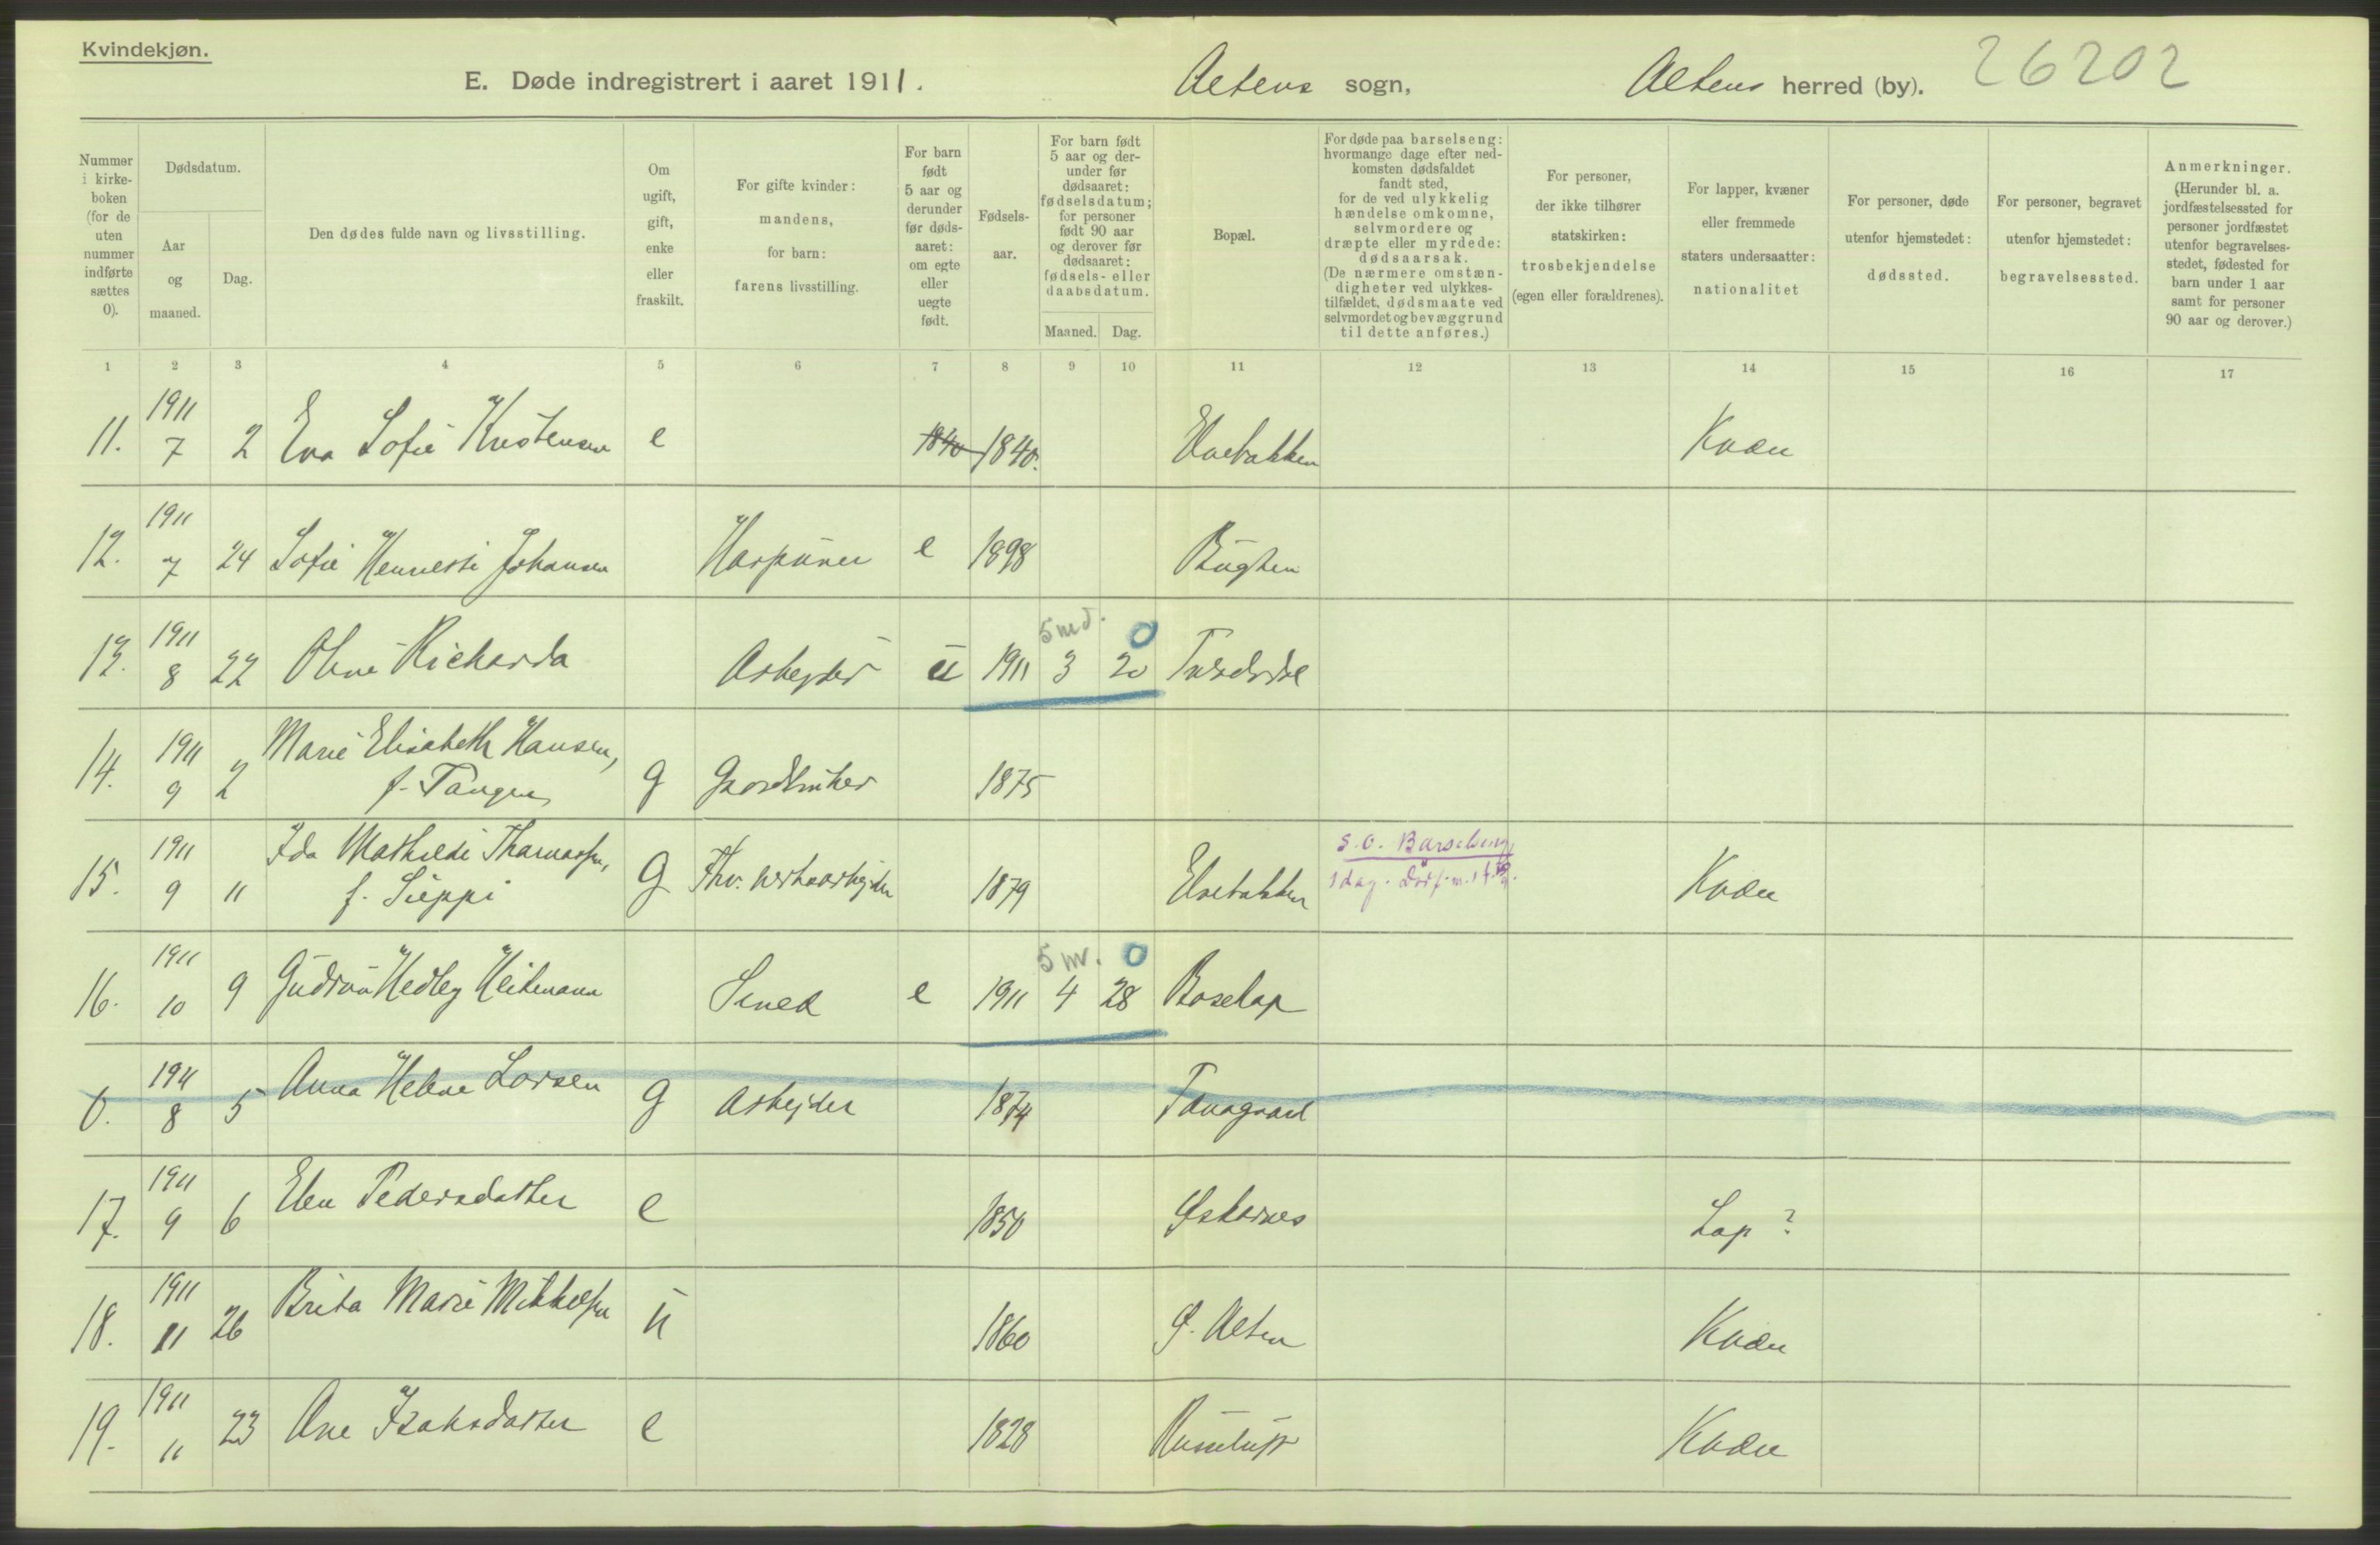 Kvindekjøn.
E. Døde indregistrert i aaret 1911. Altens sogn, Altens herred (by). 26202
Nummer i kirke-boken (for de uten nummer indførte sættes 0).
Dødsdatum.
Aar og maaned.
Dag.
Den dødes fulde navn og livsstilling.
Om ugift, gift, enke eller fraskilt.
For gifte kvinder: mandens, for barn: farens livsstilling.
For barn født 5 aar og derunder før døds-aaret: om egte eller uegte født.
Fødsels-aar.
For barn født 5 aar og der-under før dødsaaret: fødselsdatum; for personer født 90 aar og derover før dødsaaret: fødsels- eller daabsdatum.
Maaned. Dag.
Bopæl.
For døde paa barselseng: hvormange dage efter ned-komsten dødsfaldet fandt sted, for de ved ulykkelig hændelse omkomne, selvmordere og dræpte eller myrdede: dødsaarsak. (De nærmere omstæn-digheter ved ulykkes-tilfældet, dødsmaate ved selvmordet og bevæggrund til dette anføres.)
For personer, der ikke tilhører statskirken: trosbekjendelse (egen eller forældrenes).
For lapper, kvæner eller fremmede staters undersaatter: nationalitet
For personer, døde utenfor hjemstedet: dødssted.
For personer, begravet utenfor hjemstedet: begravelsessted.
Anmerkninger. (Herunder bl. a. jordfæstelsessted for personer jordfæstet utenfor begravelses-stedet, fødested for barn under 1 aar samt for personer 90 aar og derover.)
1 2 3 4 5 6 7 8 9 10 11 12 13 14 15 16 17
11. 1911 7 2 Eva Sofie Kristensen e 1840 1840. Elvebakken Kvæn
12. 1911 7 24 Sofie Henriette Johansen Harpuner e 1898 Bugten
13. 1911 8 22 Oline Richarda Arbejder u 1911 5 md. 3 0 20
14. 1911 9 2 Marie Elisabeth Hansen,
f. Tangen g Gaardbruker 1875
15. 1911 9 11 Ida Mathilde Thomassen,
f. Sieppi g 1879 Elvebakken S.O. Barselseng Kvæn
1 dag.
16. 1911 10 9 Gudrun Hedley Heitmann Smed e 1911 5 m. 4 0 28 Bosekop
0. 1911 8 5 Anna Helene Larsen g Arbejder 1874
17. 1911 9 6 Elen Pedersdatter e 1850 Øskarnes Lap ?
18. 1911 11 26 Brita Marie Mikkelsen u 1860 Ø. Alten Kvæn
19. 1911 11 23 Ane Isaksdatter e 1828 Russeluft Kvæn